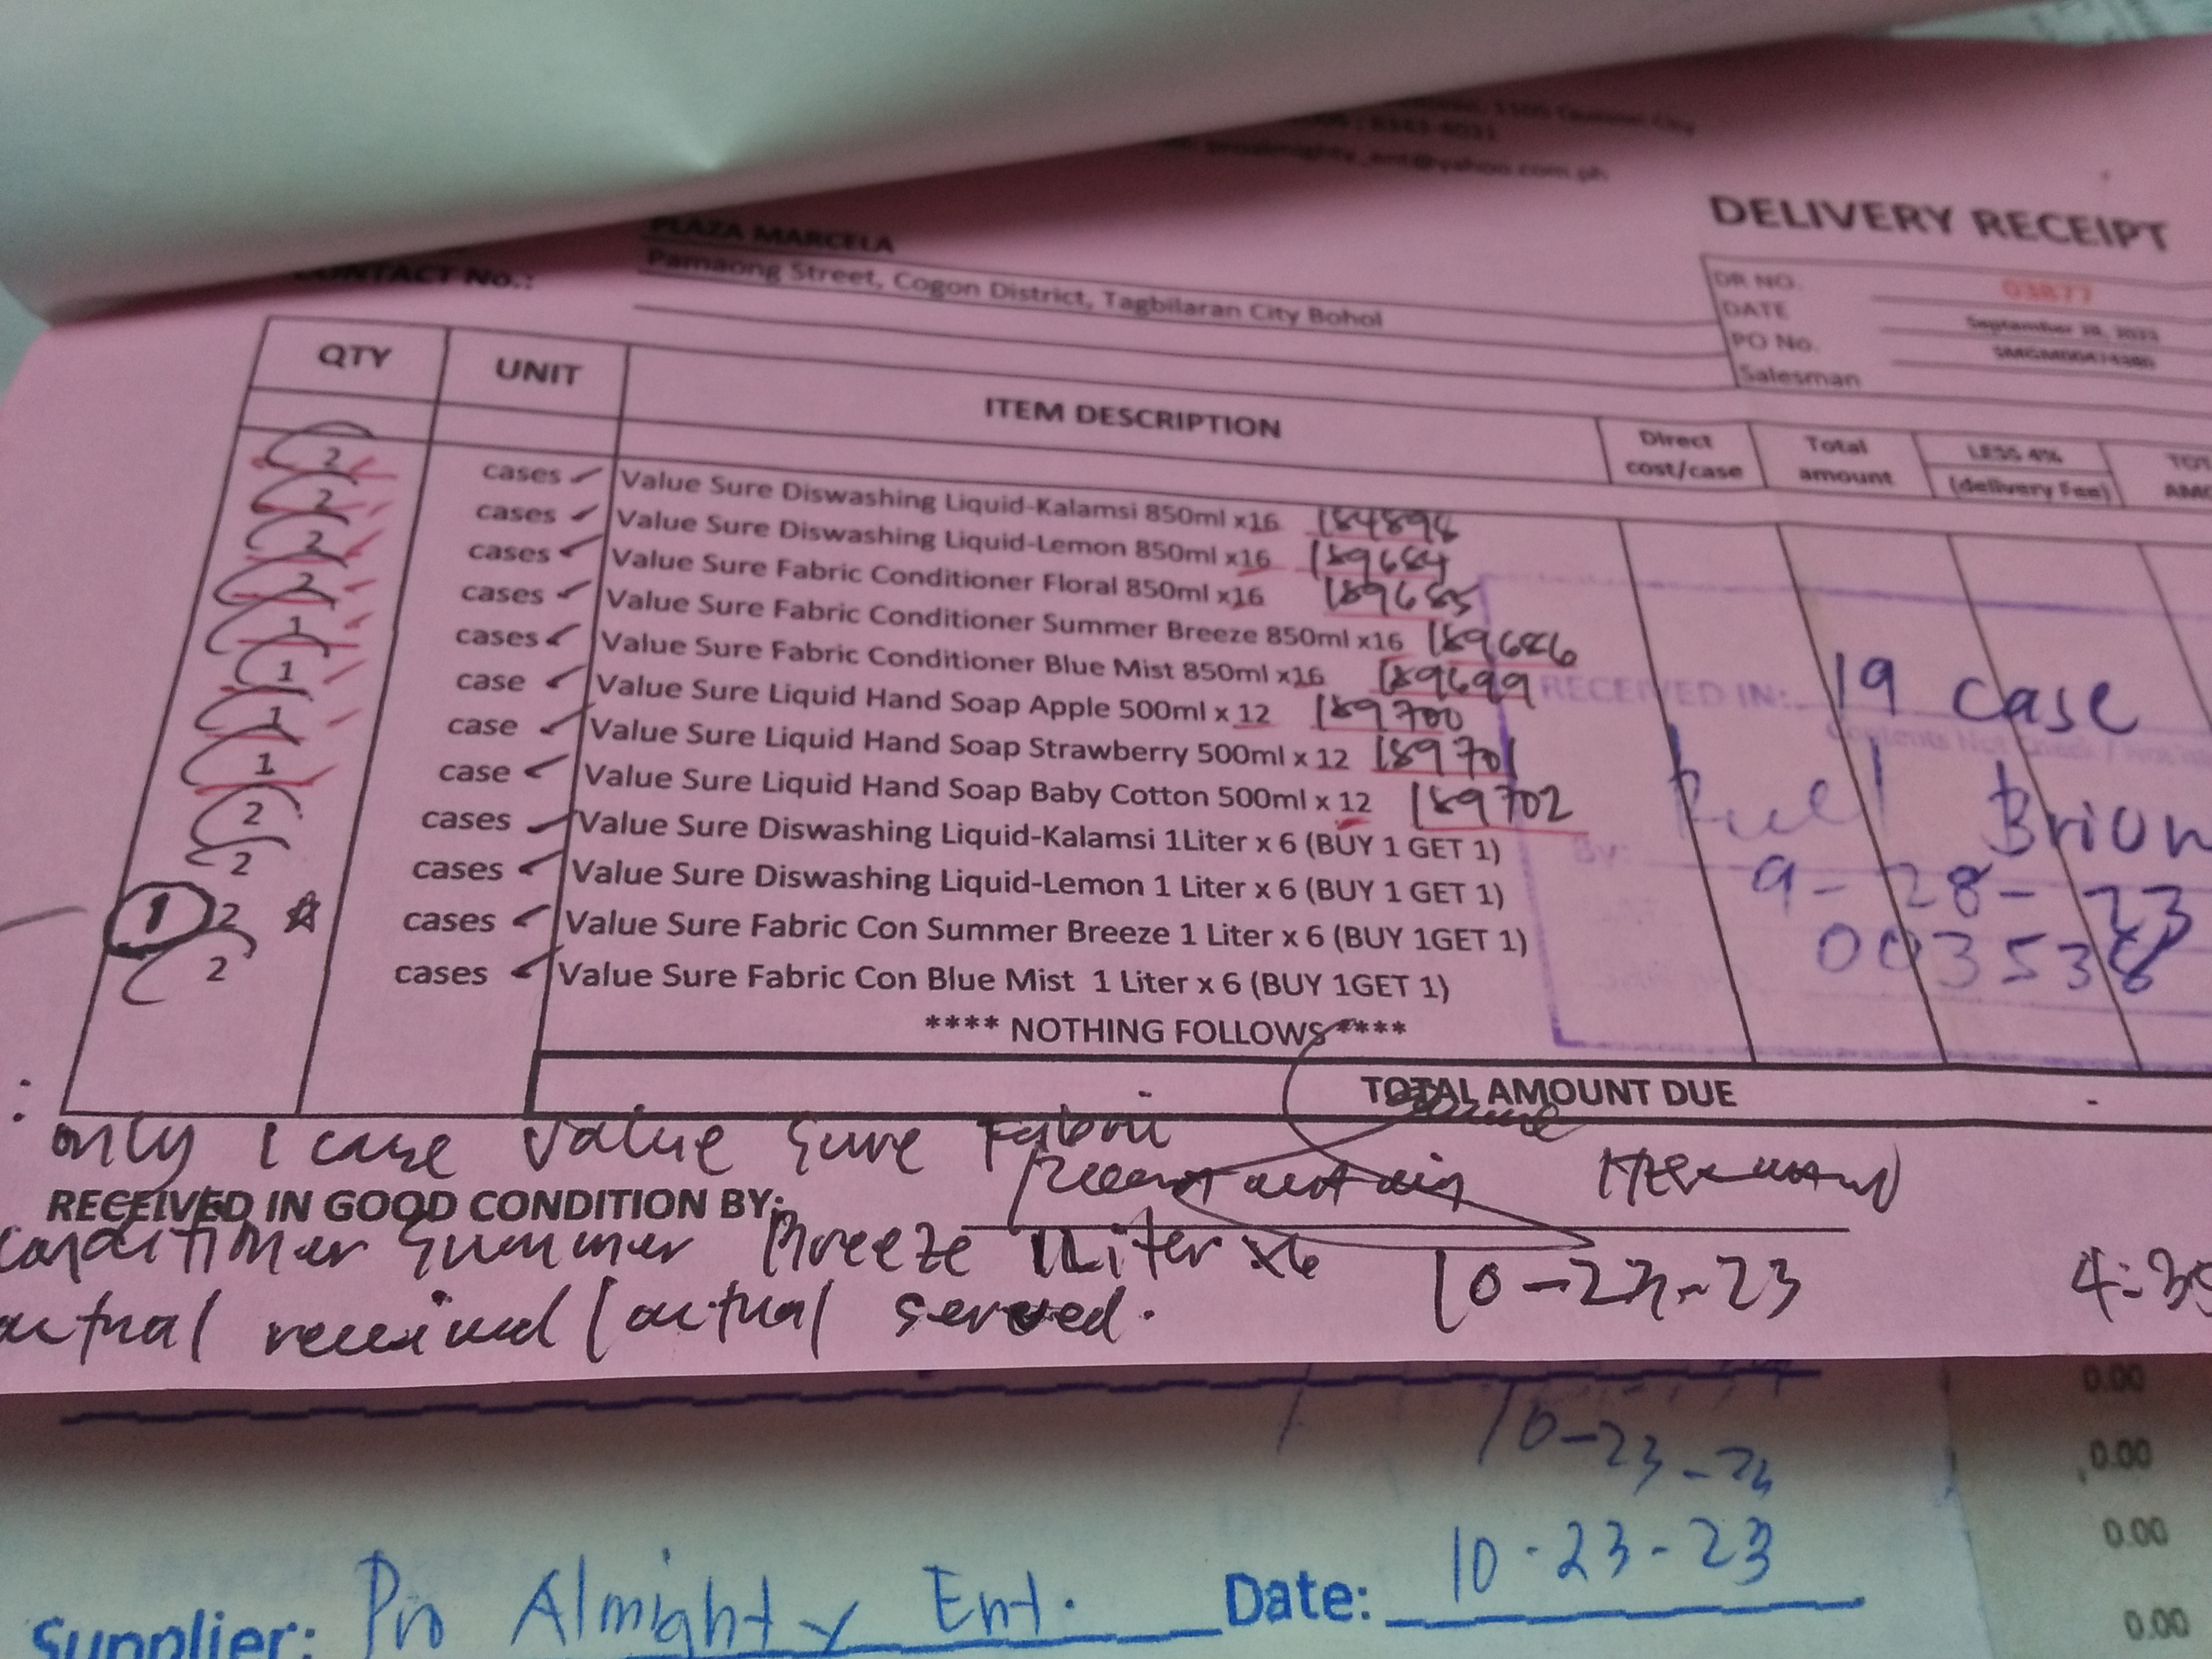 1105 Quezon City
proalmighty_ent@yahoo.com.ph
PLAZA MARCELA
Pamaong Street, Cogon District, Tagbilaran City Bohol
CONTACT No.:
DELIVERY RECEIPT
DR NO. 03877
DATE September 28, 2023
PO No.
Salesman
QTY UNIT ITEM DESCRIPTION Direct cost/case Total amount LESS 4% (delivery Fee)
2 cases Value Sure Diswashing Liquid-Kalamsi 850ml x16
2 cases Value Sure Diswashing Liquid-Lemon 850ml x16 189684
2 cases Value Sure Fabric Conditioner Floral 850ml x16 189685
2 cases Value Sure Fabric Conditioner Summer Breeze 850ml x16 189686
1 cases Value Sure Fabric Conditioner Blue Mist 850ml x16 189699
1 case Value Sure Liquid Hand Soap Apple 500ml x 12 189700
1 case Value Sure Liquid Hand Soap Strawberry 500ml x 12 189701
1 case Value Sure Liquid Hand Soap Baby Cotton 500ml x 12 189702
2 cases Value Sure Diswashing Liquid-Kalamsi 1Liter x 6 (BUY 1 GET 1)
2 cases Value Sure Diswashing Liquid-Lemon 1 Liter x 6 (BUY 1 GET 1)
1 2 cases Value Sure Fabric Con Summer Breeze 1 Liter x 6 (BUY 1GET 1)
2 cases Value Sure Fabric Con Blue Mist 1 Liter x 6 (BUY 1GET 1)
**** NOTHING FOLLOWS ****
RECEIVED IN: 19 case
By: Ruel Brion
9-28-23
003538
TOTAL AMOUNT DUE -
only 1 case Value Sure Fabric
RECEIVED IN GOOD CONDITION BY:
Conditioner Summer Breeze 1Liter x6
10-23-23
actual received / actual served.
0.00
10-23-23
0.00
0.00
10-23-23
Supplier: Pro Almighty Ent. Date:
0.00